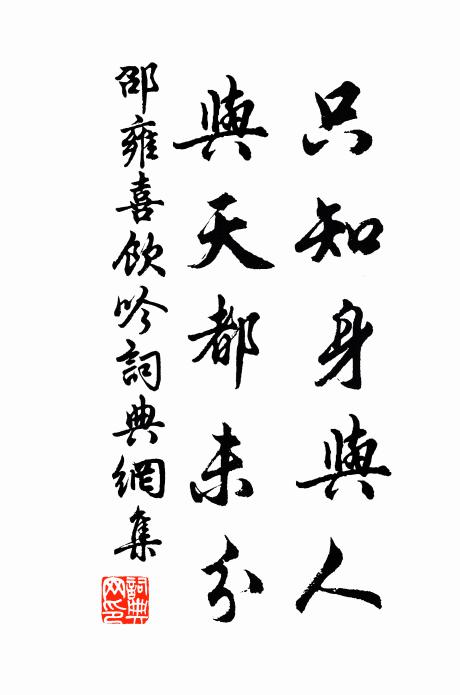 只知身與人
與天都未分
邵雍喜飲吟詞典網集
詞典
網印